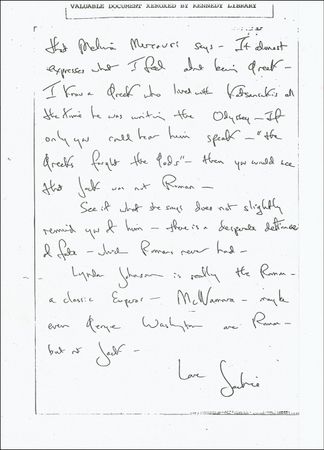 VALUABLE DOCUMENT XEROXED BY KENNEDY LIBRARY
that Melina Mercouri says – It almost
expresses what I feel about being Greek –
I know a Greek who lived with Kazantzakis all
the time he was writing the Odyssey – If
only you could hear him speak – "the
Greeks fought the Gods" – then you would see
that Jack was not Roman –
See if what she says does not slightly
remind you of him – there is a desperate defiance
of fate – which Romans never had –
Lyndon Johnson is really the Roman –
a classic Emperor – McNamara – maybe
even George Washington are Roman –
but not Jack –
Love
Jackie